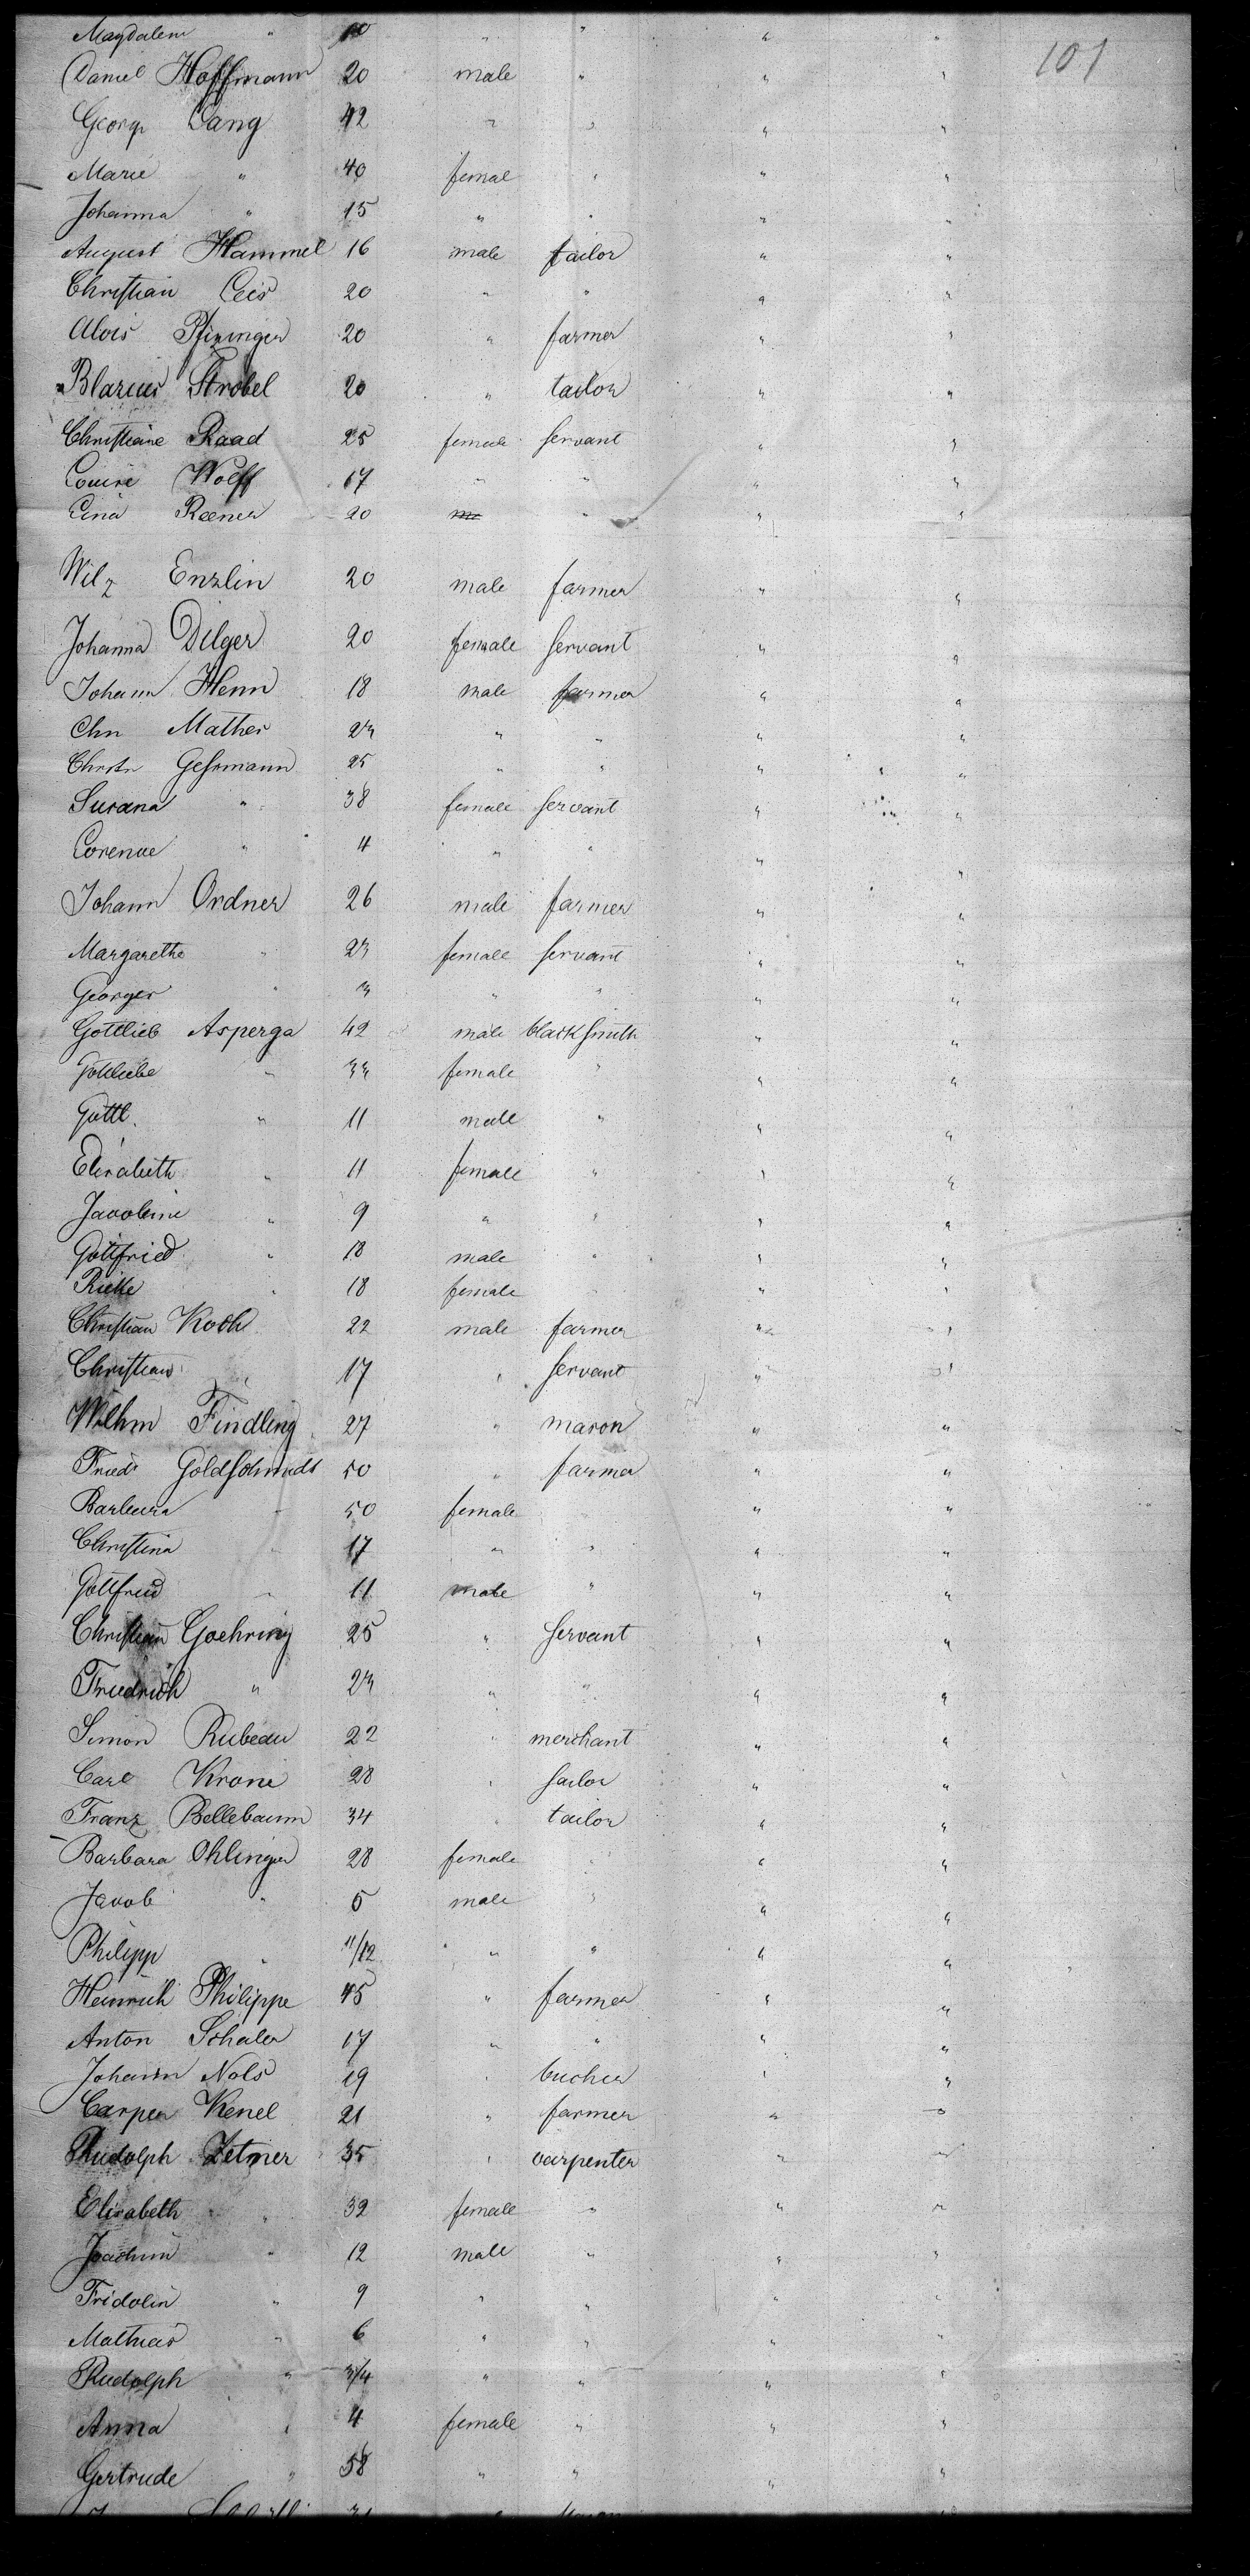 Magdalene " 10 " " " "
101
Daniel Hoffmann 20 male " " "
Georg Lang 42 " " " "
Marie " 40 femal " " "
Johanna " 15 " " " "
August Hammel 16 male tailor " "
Christian Leis 20 " " " "
Alois Pfizinger 20 " farmer " "
Blasius Strobel 20 " tailor " "
Christiane Raad 25 female servant " "
Louise Wolff 17 " " " "
Lina Reener 20 " " "
Wilz Enzlin 20 male farmer " "
Johanna Dilger 20 female servant " "
Johann Henn 18 male farmer " "
Chn Mather 23 " " " "
Christn Gehrmann 25 " " " "
Susana " 38 female servant " "
Lorence " 4 " " " "
Johann Ordner 26 male farmer " "
Margarethe " 23 female servant " "
Georger " 3 " " " "
Gottlieb Asperga 42 male blacksmith " "
Gottliebe " 33 female " " "
Gottl. " 11 male " " "
Elisabeth " 11 female " " "
Jacobine " 9 " " " "
Gottfried " 18 male " " "
Rieke " 18 female " " "
Christian Koch 22 male farmer " "
Christian " 17 " servant " "
Wilhm Findling 27 " mason " "
Friedr Goldschmidt 50 " farmer " "
Barbara " 50 female " "
Christina " 17 " " " "
Gottfried " 11 male " " "
Christian Goehring 25 " servant " "
Friedrich " 23 " " " "
Simon Rubeau 22 " merchant " "
Carl Krone 28 " sailor " "
Franz Bellebaum 34 " tailor " "
Barbara Ohlinger 28 female " " "
Jacob " 5 male " " "
Philipp " 11/12 " " " "
Heinrich Philippe 45 " farmer " "
Anton Schaler 17 " " " "
Johann Nols 19 " bucher " "
Carper Kenel 21 " farmer " "
Rudolph Zetmer 35 " carpenter " "
Elisabeth " 32 female " " "
Joachim " 12 male " " "
Fridolin " 9 " " " "
Mathias " 6 " " " "
Rudolph " 3/4 " " " "
Anna " 4 female " " "
Gertrude " 58 " " " "